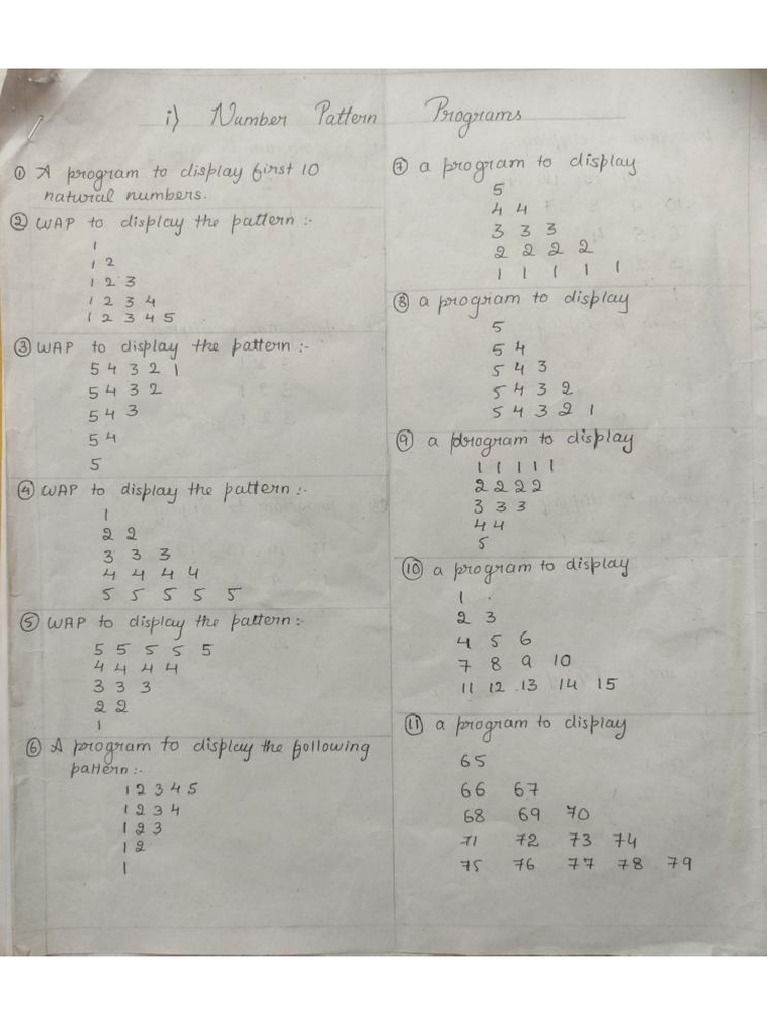 i) Number Pattern Programs
① A program to display first 10
natural numbers.
② WAP to display the pattern :-
1
1 2
1 2 3
1 2 3 4
1 2 3 4 5
③ WAP to display the pattern :-
5 4 3 2 1
5 4 3 2
5 4 3
5 4
5
④ WAP to display the pattern :-
1
2 2
3 3 3
4 4 4 4
5 5 5 5 5
⑤ WAP to display the pattern :-
5 5 5 5 5
4 4 4 4
3 3 3
2 2
1
⑥ A program to display the following
pattern :-
1 2 3 4 5
1 2 3 4
1 2 3
1 2
1
⑦ a program to display
5
4 4
3 3 3
2 2 2 2
1 1 1 1 1
⑧ a program to display
5
5 4
5 4 3
5 4 3 2
5 4 3 2 1
⑨ a program to display
1 1 1 1 1
2 2 2 2
3 3 3
4 4
5
⑩ a program to display
1
2 3
4 5 6
7 8 9 10
11 12 13 14 15
⑪ a program to display
65
66 67
68 69 70
71 72 73 74
75 76 77 78 79